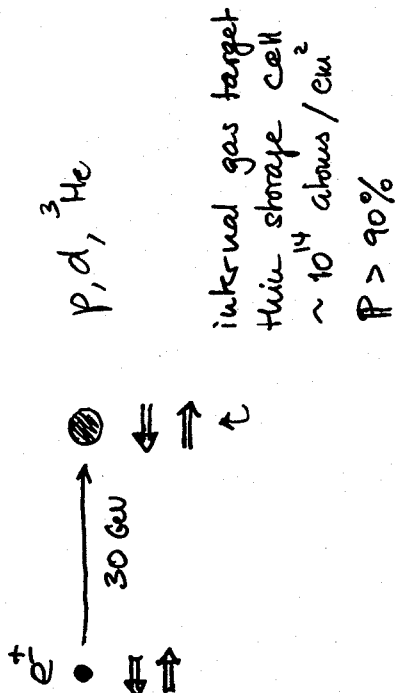 e⁺
30 GeV
p, d, ³He
internal gas target
thin storage cell
~ 10¹⁴ atoms / cm²
P > 90%